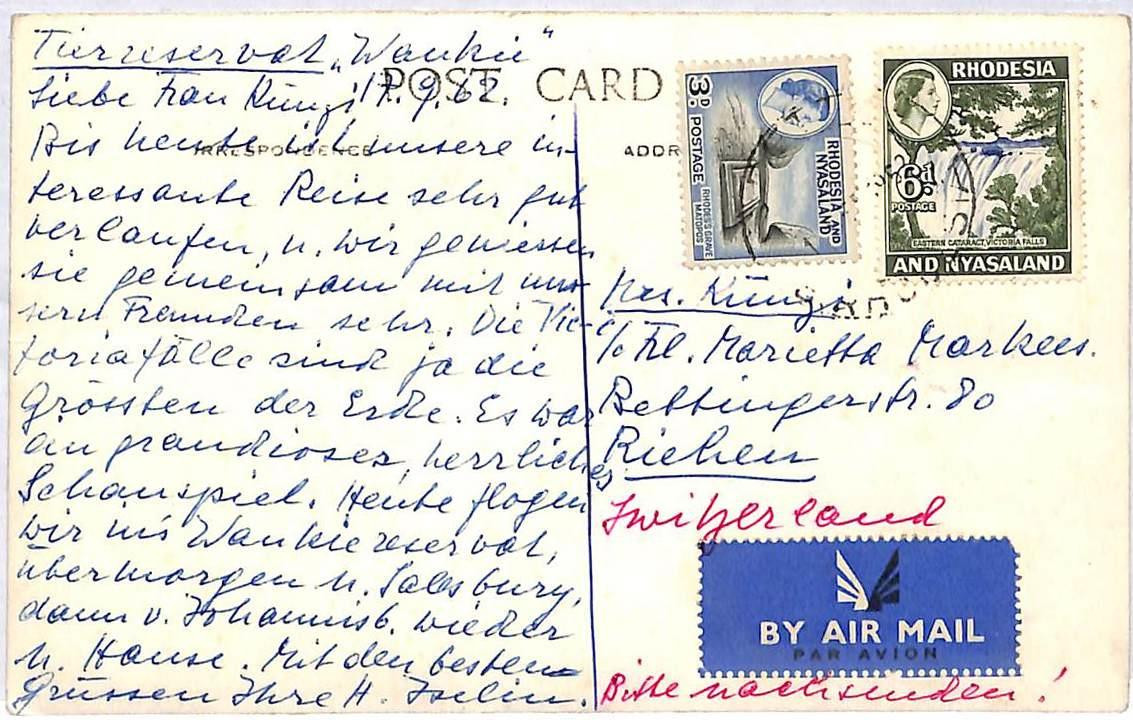 Tierreservat „Wankie“
POST CARD
Liebe Frau Künzi, 17.9.62.
CORRESPONDENCE
Bis heute ist unsere in-
teressante Reise sehr gut
verlaufen, u. wir geniessen
sie gemeinsam mit un-
sern Freunden sehr. Die Vic-
toriafälle sind ja die
Grössten der Erde. Es war
ein grandioses, herrliches
Schauspiel. Heute flogen
wir ins Wankiereservat,
übermorgen n. Salisbury,
dann v. Johannisb. wieder
n. Hause. Mit den besten
Grüssen Ihre H. Iselin.
ADDR
3D. POSTAGE
RHODESIA AND
NYASALAND
RHODES'S GRAVE
MATOPOS
RHODESIA
6d
POSTAGE
EASTERN CATARACT, VICTORIA FALLS
AND NYASALAND
Mrs. Künzi
c/o Frl. Marietta Markees.
Bettingerstr. 80
Riehen
Switzerland
BY AIR MAIL
PAR AVION
Bitte nachsenden!